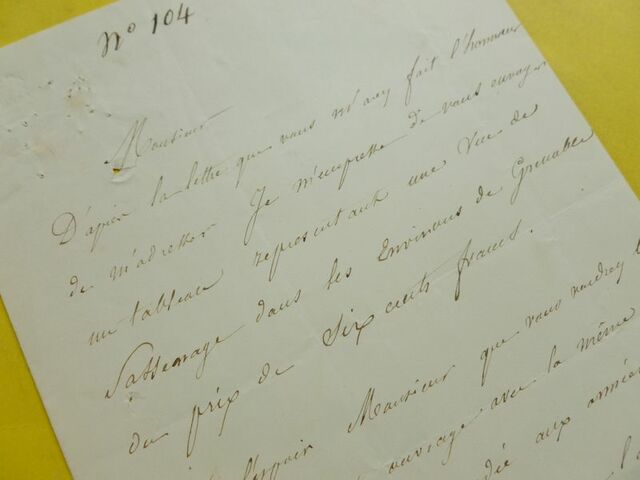 N° 104
Monsieur
D'après la lettre que vous m'avez fait l'honneur
de m'adresser Je m'empresse de vous envoyer
un tableau representant une Vue de
Sassenage dans les Environs de Grenoble
du prix de Six cents francs.
l'espoir Monsieur que vous voudrez
ouvrage avec la même
aux